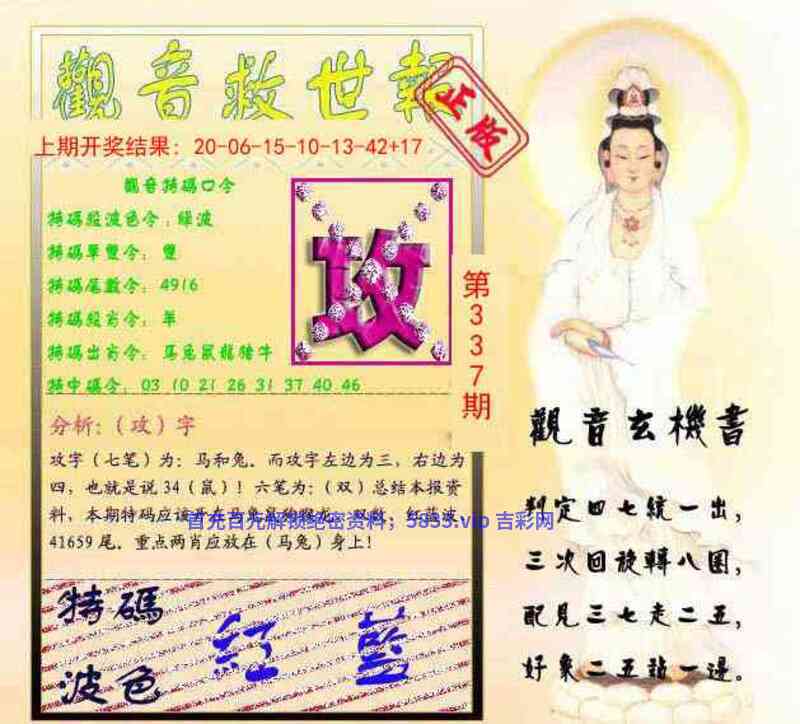 觀音救世報
正版
上期开奖结果：20-06-15-10-13-42+17
觀音特碼口令
特碼波色令：綠波
特碼單雙令：雙
特碼尾數令：4916
特碼殺肖令：羊
特碼出肖令：马兔鼠龍猪牛
特中碼令：03 10 21 26 31 37 40 46
攻
第337期
分析：（攻）字
攻字（七笔）为：马和兔．而攻字左边为三，右边为
四，也就是说 34（鼠）！六笔为：（双）总结本报资
料，本期特码应该开在马兔鼠狗猴龙．双数．红蓝波
41659 尾．重点两肖应放在（马兔）身上！
5833.vip 吉彩网
特碼
波色
紅 藍
觀音玄機書
判定四七統一出，
三次回旋轉八圍，
配見三七走二五，
好象二五站一邊。